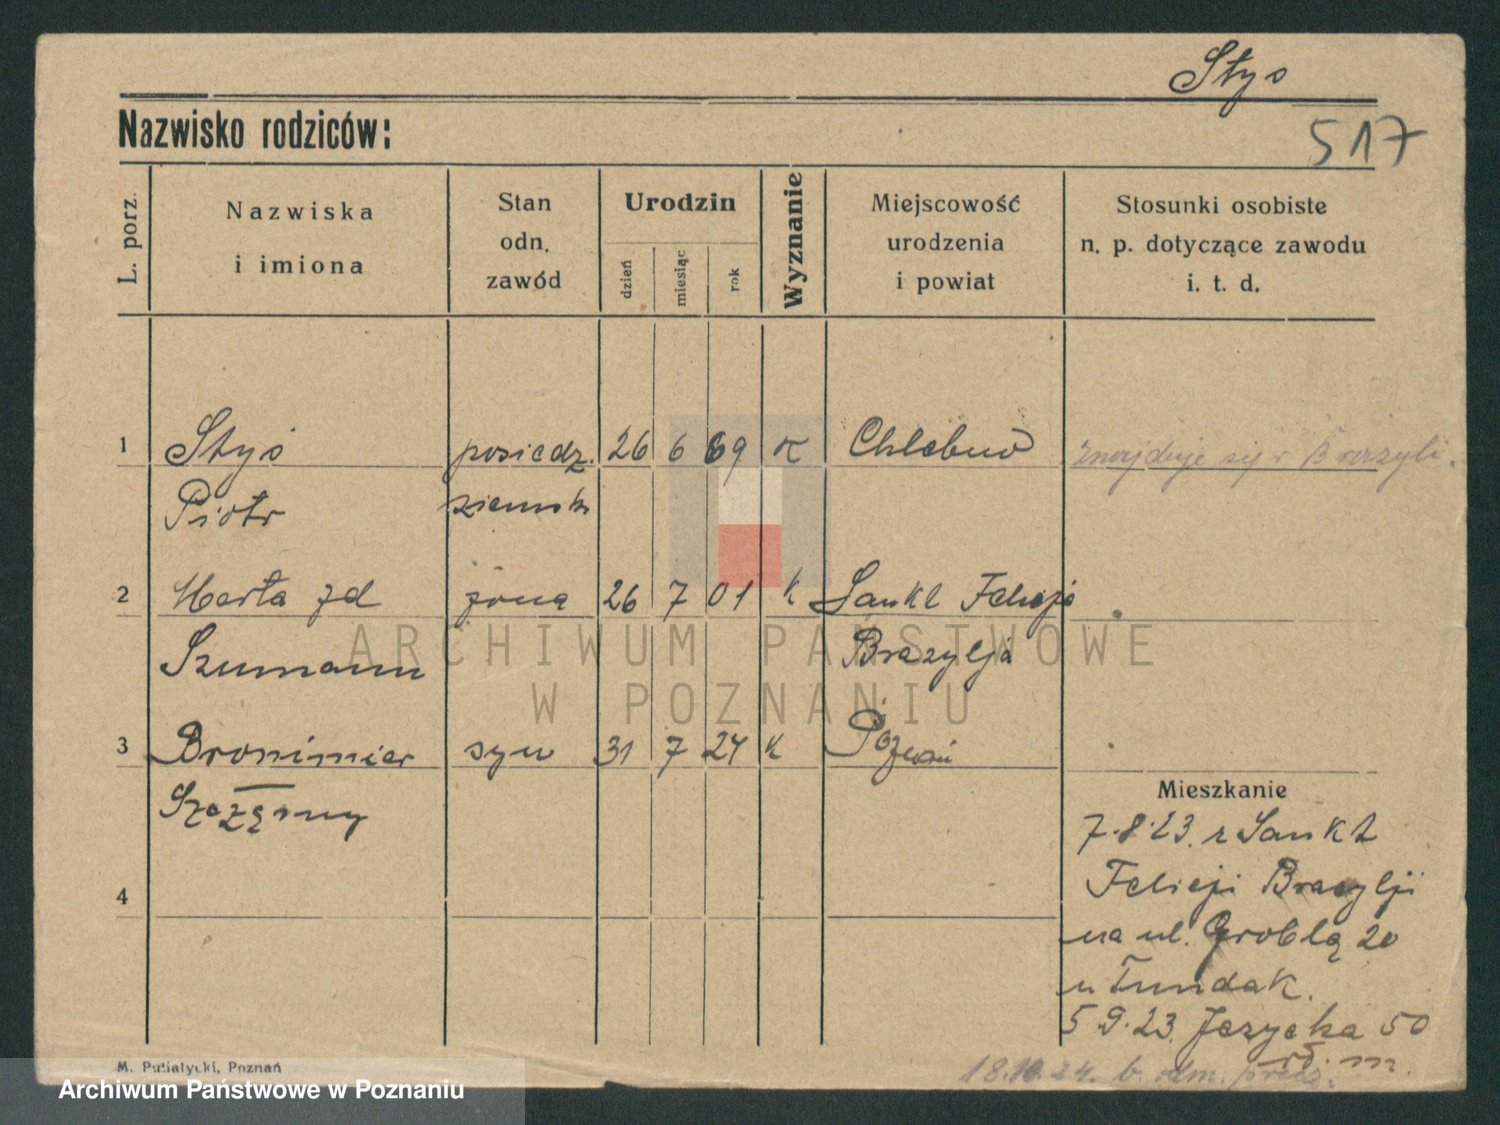 Styś
517
Nazwisko rodziców:
L. porz.
Nazwiska i imiona
Stan odn. zawód
Urodzin
dzień miesiąc rok
Wyznanie
Miejscowość urodzenia i powiat
Stosunki osobiste n. p. dotyczące zawodu i. t. d.
1 Styś posiedz. 26 6 69 K Chlebno znajduje się w Brazyli.
Piotr ziemsk
2 Marta zd żona 26 7 01 K Sankt Felicja
Szumann Brazylja
3 Bronimier syn 31 7 24 K Poznań
Szczęsny
4
Mieszkanie
7.8.23. z Sankt
Felicji Brazylji
na ul. Grobla 20
u Tundak.
5 9.23. Jezycka 50
18.10.24. b.
M. Putiatycki, Poznań
ARCHIWUM PAŃSTWOWE
W POZNANIU
Archiwum Państwowe w Poznaniu